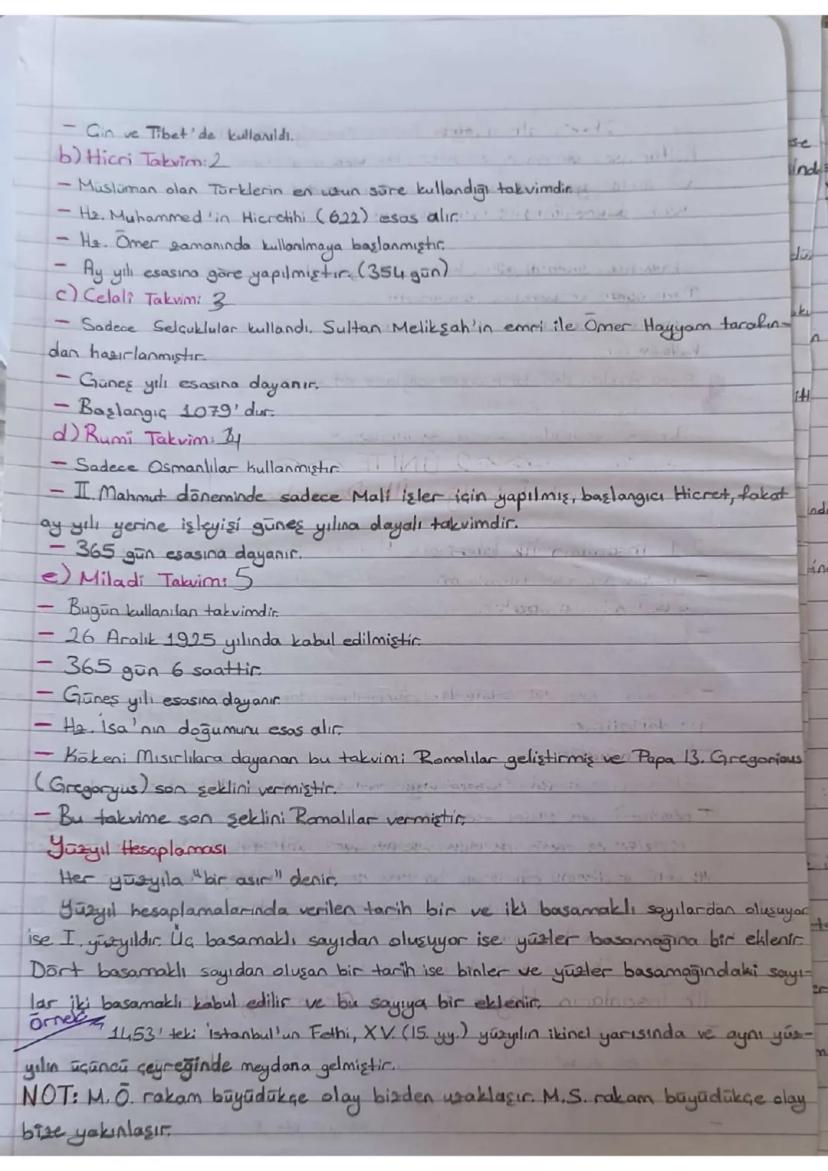 - Çin ve Tibet'de kullanıldı.
b) Hicri Takvim: 2
- Müslüman olan Türklerin en uzun süre kullandığı takvimdir.
- Hz. Muhammed'in Hicretini (622) esas alır.
- Hz. Ömer zamanında kullanılmaya başlanmıştır.
- Ay yılı esasına göre yapılmıştır. (354 gün)
c) Celali Takvim: 3
- Sadece Selçuklular kullandı. Sultan Melikşah'in emri ile Ömer Hayyam tarafın-
dan hazırlanmıştır.
- Güneş yılı esasına dayanır.
- Başlangıç 1079'dur.
d) Rumi Takvim: 4
- Sadece Osmanlılar kullanmıştır.
- II. Mahmut döneminde sadece Mali işler için yapılmış, başlangıcı Hicret, fakat
ay yılı yerine işleyişi güneş yılına dayalı takvimdir.
- 365 gün esasına dayanır.
e) Miladi Takvim: 5
- Bugün kullanılan takvimdir.
- 26 Aralık 1925 yılında kabul edilmiştir.
- 365 gün 6 saattir.
- Güneş yılı esasına dayanır.
- Hz. İsa'nın doğumunu esas alır.
- Kökeni Mısırlılara dayanan bu takvimi Romalılar geliştirmiş ve Papa 13. Gregorious
(Gregoryus) son şeklini vermiştir.
- Bu takvime son şeklini Romalılar vermiştir.
Yüzyıl Hesaplaması
Her yüzyıla "bir asır" denir.
Yüzyıl hesaplamalarında verilen tarih bir ve iki basamaklı sayılardan oluşuyor
ise I. yüzyıldır. Üç basamaklı sayıdan oluşuyor ise yüzler basamağına bir eklenir.
Dört basamaklı sayıdan oluşan bir tarih ise binler ve yüzler basamağındaki sayı-
lar iki basamaklı kabul edilir ve bu sayıya bir eklenir.
Örnek
1453'teki İstanbul'un Fethi, XV. (15. yy.) yüzyılın ikinci yarısında ve aynı yüz-
yılın üçüncü çeyreğinde meydana gelmiştir.
NOT: M.Ö. rakam büyüdükçe olay bizden uzaklaşır. M.S. rakam büyüdükçe olay
bize yakınlaşır.